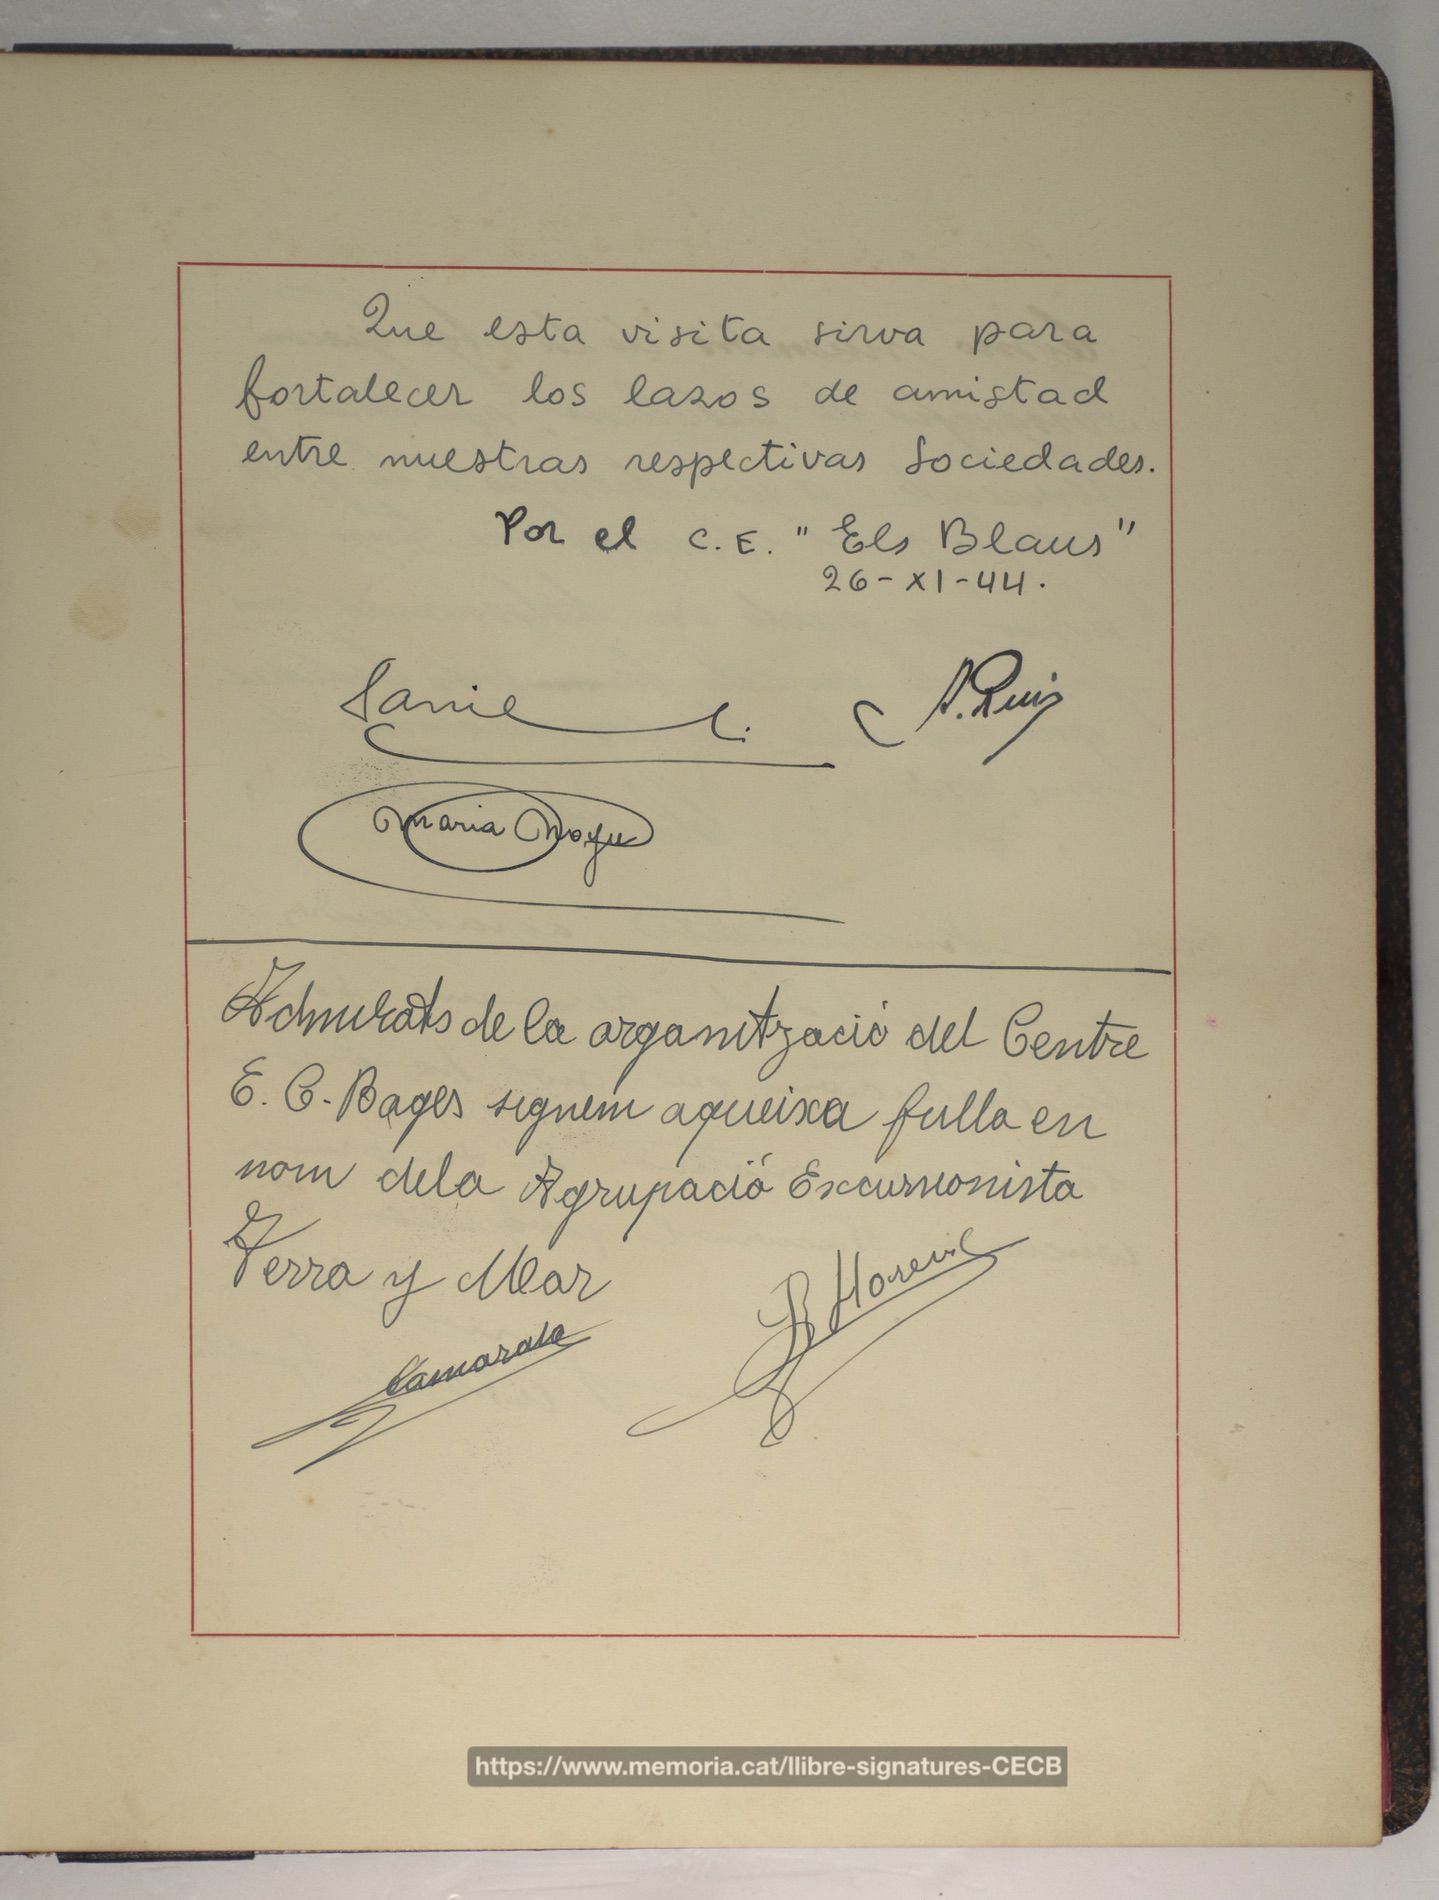 Que esta visita sirva para
fortalecer los lazos de amistad
entre nuestras respectivas Sociedades.
Por el C.E. "Els Blaus"
26-XI-44.
A. Ruiz
Maria Moyu
Admirats de la organització del Centre
E. C. Bages signem aqueixa fulla en
nom dela Agrupació Excursionista
Terra y Mar
Camarasa
https://www.memoria.cat/llibre-signatures-CECB